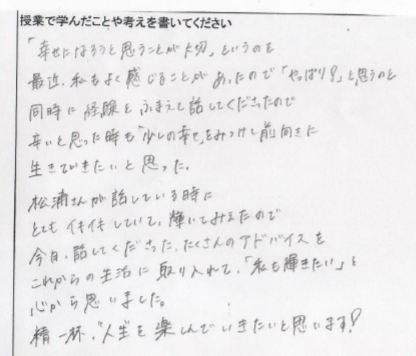 授業で学んだことや考えを書いてください
「幸せになろうと思うことが大切」というのを
最近、私もよく感じることがあったので「やっぱり？」と思うのと
同時に経験とふまえて話してくださったので
辛いと思った時も"少しの幸せ"をみつけて前向きに
生きていきたいと思った。
松浦さんが話している時に
とてもイキイキしていて、輝いてみえたので
今日、話してくださった、たくさんのアドバイスを
これからの生活に取り入れて、「私も輝きたい」と
心から思いました。
精一杯、"人生を楽しんでいきたいと思います!